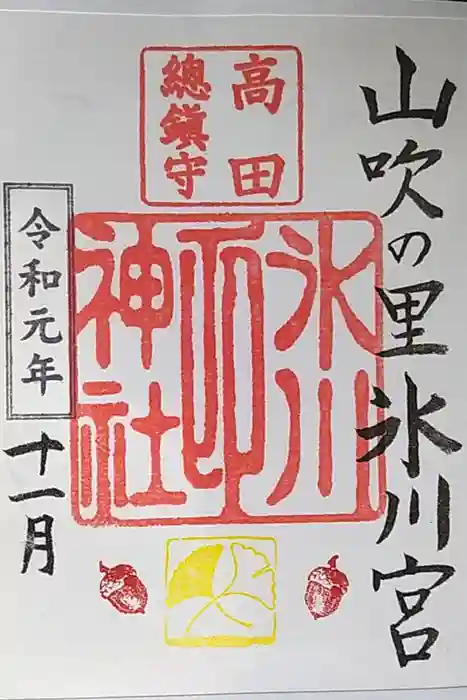 山吹の里氷川宮
高田
總鎮守
氷川
神社
印
令和元年
十一月